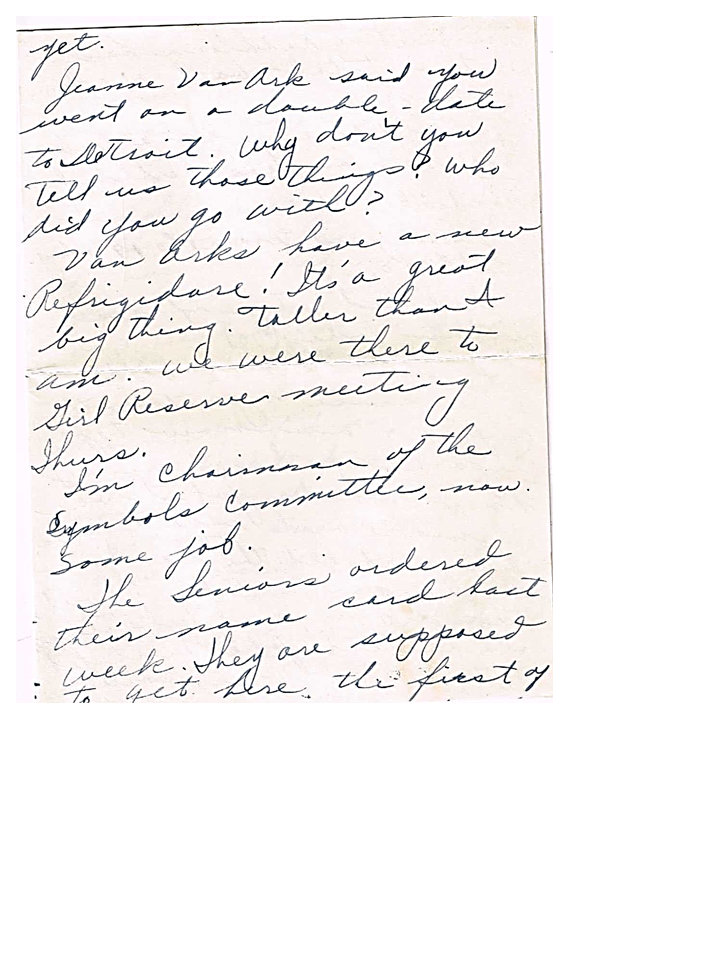 yet.
Jeanne Van Ark said you
went on a double-date
to Detroit. Why don't you
tell us those things? Who
did you go with?
Van Arks have a new
Refrigidare! It's a great
big thing. Taller than I
am. We were there to
Girl Reserve meeting
Thurs.
I'm chairman of the
Symbols Committee, now.
Some job.
The Seniors ordered
their name card last
week. They are supposed
to get here the first of